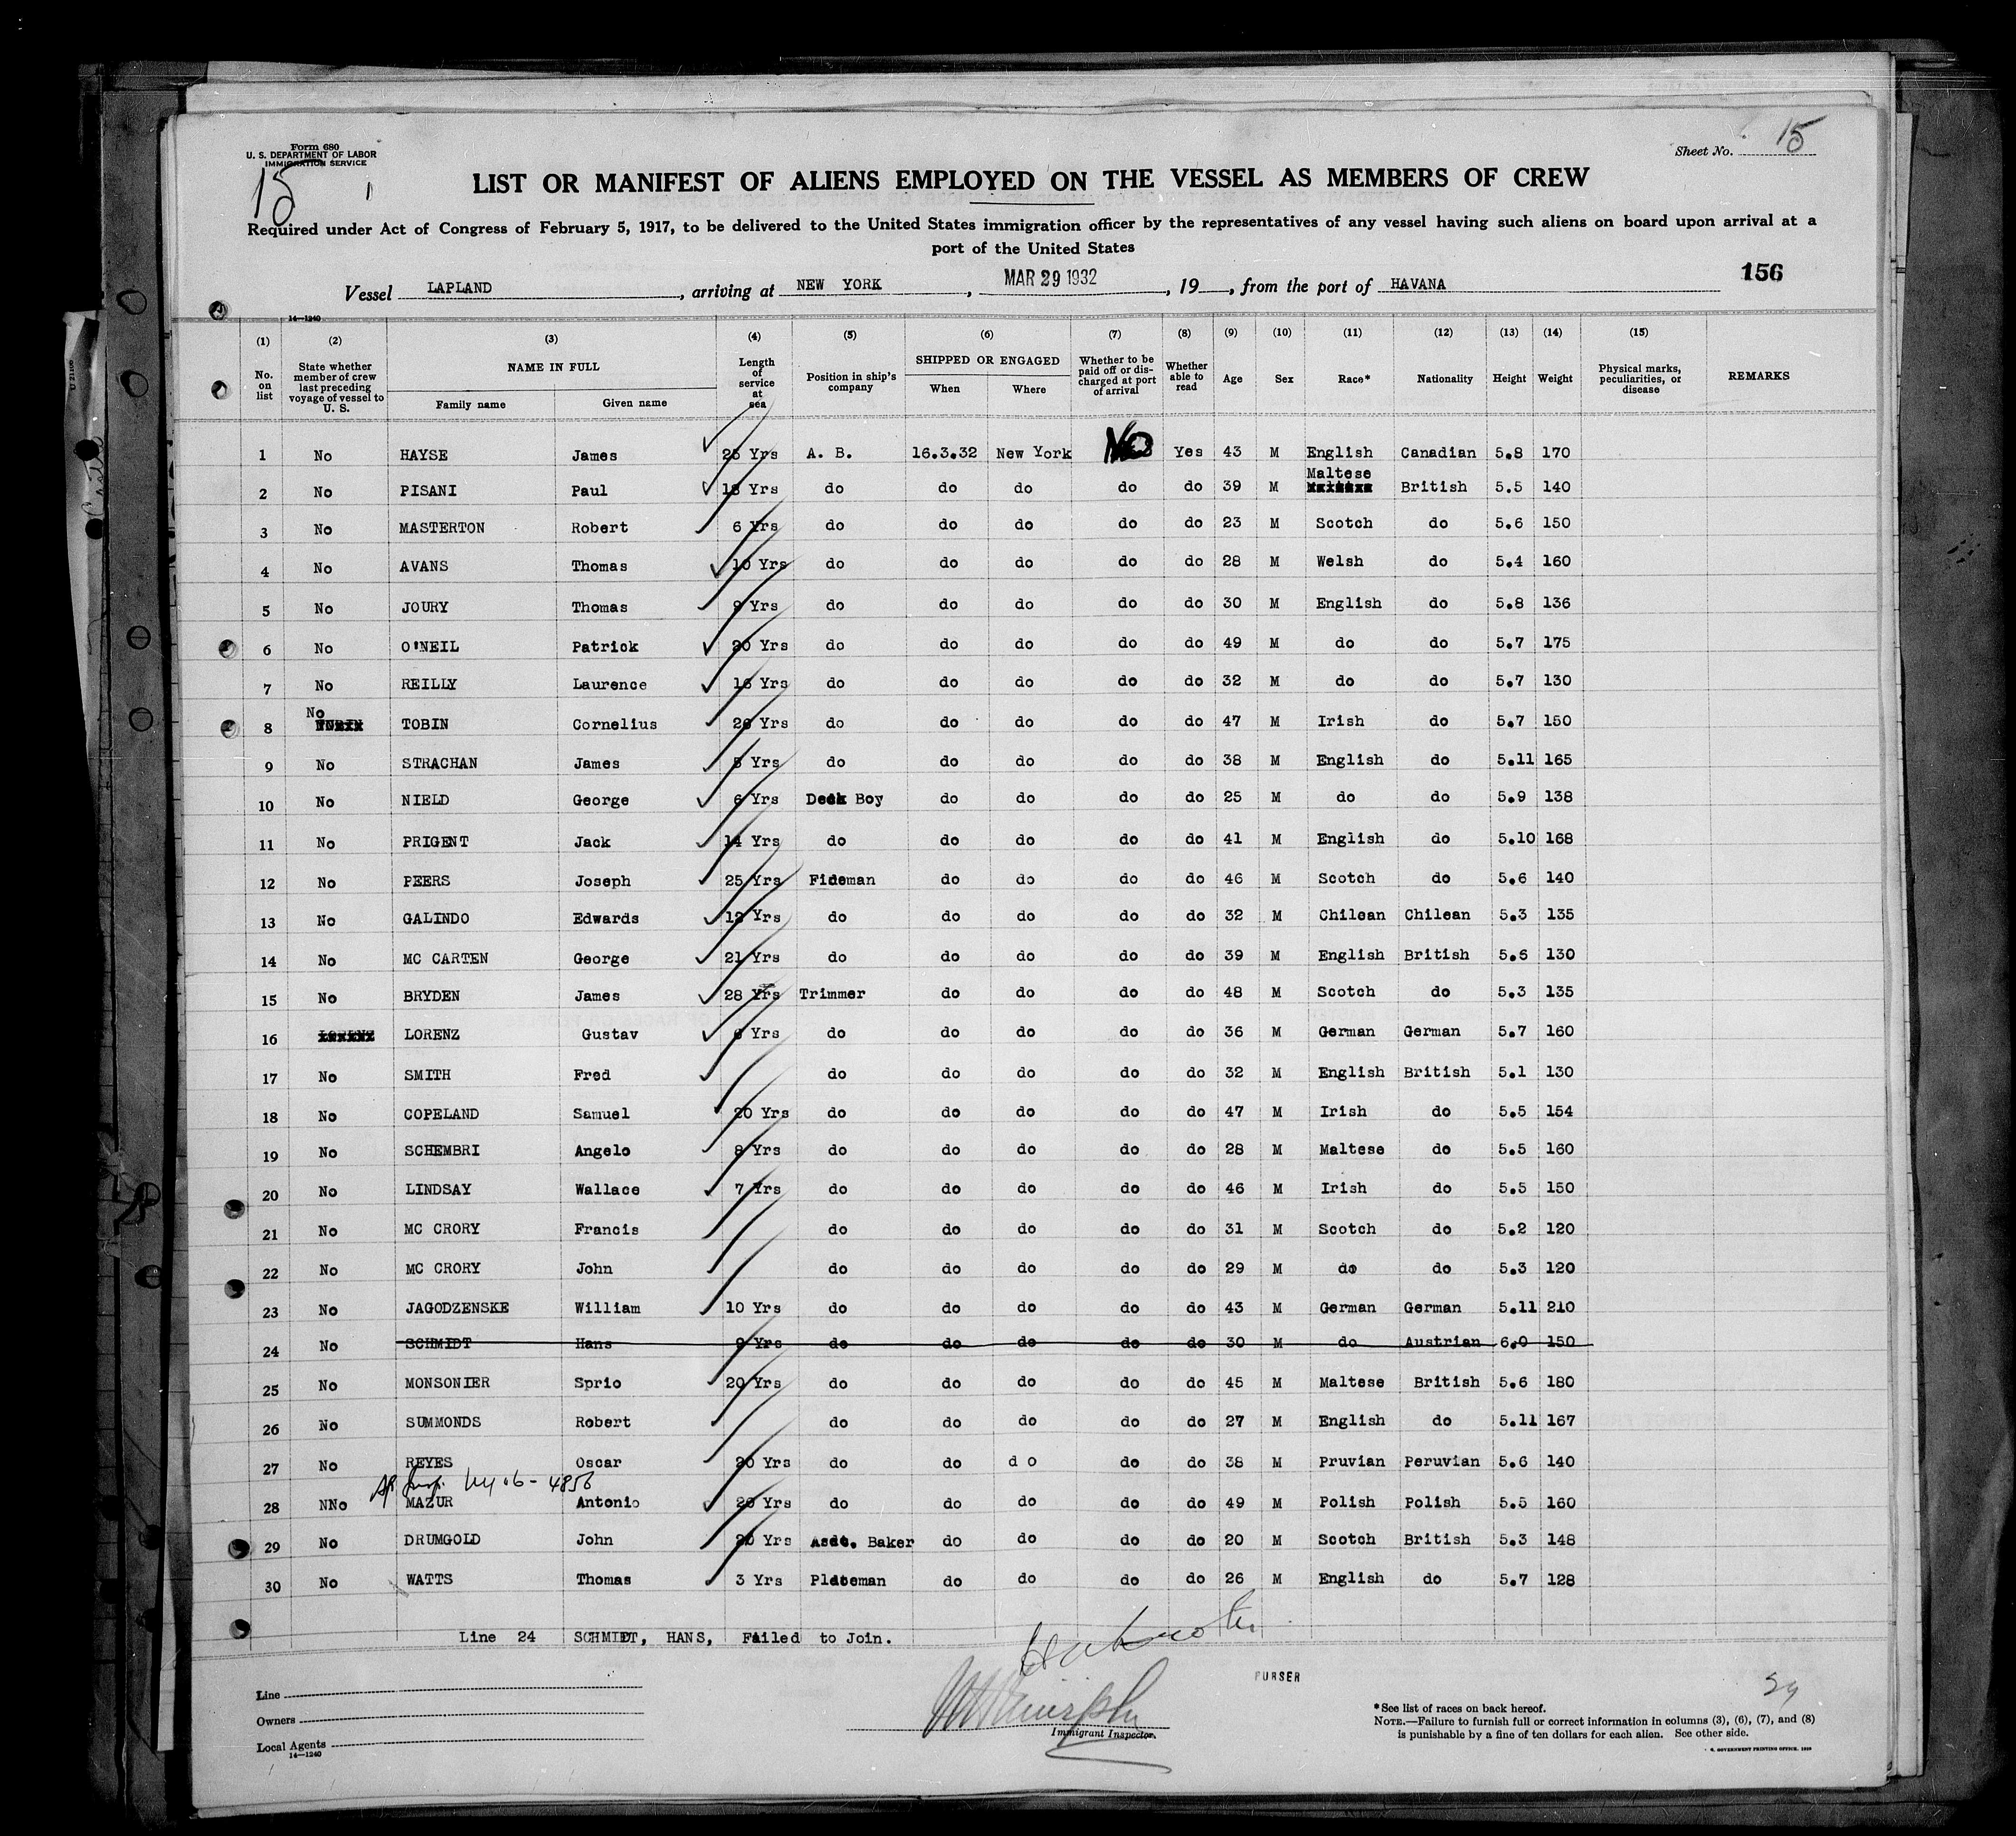 Form 680
U. S. DEPARTMENT OF LABOR
IMMIGRATION SERVICE
15
Sheet No. 15
LIST OR MANIFEST OF ALIENS EMPLOYED ON THE VESSEL AS MEMBERS OF CREW
Required under Act of Congress of February 5, 1917, to be delivered to the United States immigration officer by the representatives of any vessel having such aliens on board upon arrival at a
port of the United States
156
Vessel LAPLAND, arriving at NEW YORK, MAR 29 1932, 19, from the port of HAVANA
14—1240
(1) (2) (3) (4) (5) (6) (7) (8) (9) (10) (11) (12) (13) (14) (15)
No. on list
State whether member of crew last preceding voyage of vessel to U. S.
NAME IN FULL
Family name Given name
Length of service at sea
Position in ship's company
SHIPPED OR ENGAGED
When Where
Whether to be paid off or discharged at port of arrival
Whether able to read
Age Sex Race* Nationality Height Weight
Physical marks, peculiarities, or disease
REMARKS
1 No HAYSE James 25 Yrs A. B. 16.3.32 New York No Yes 43 M English Canadian 5.8 170
2 No PISANI Paul 18 Yrs do do do do do 39 M Maltese British 5.5 140
3 No MASTERTON Robert 6 Yrs do do do do do 23 M Scotch do 5.6 150
4 No AVANS Thomas 10 Yrs do do do do do 28 M Welsh do 5.4 160
5 No JOURY Thomas 9 Yrs do do do do do 30 M English do 5.8 136
6 No O'NEIL Patrick 20 Yrs do do do do do 49 M do do 5.7 175
7 No REILLY Laurence 16 Yrs do do do do do 32 M do do 5.7 130
8 No TOBIN Cornelius 26 Yrs do do do do do 47 M Irish do 5.7 150
9 No STRACHAN James 5 Yrs do do do do do 38 M English do 5.11 165
10 No NIELD George 6 Yrs Deck Boy do do do do 25 M do do 5.9 138
11 No PRIGENT Jack 14 Yrs do do do do do 41 M English do 5.10 168
12 No PEERS Joseph 25 Yrs Fideman do do do do 46 M Scotch do 5.6 140
13 No GALINDO Edwards 12 Yrs do do do do do 32 M Chilean Chilean 5.3 135
14 No MC CARTEN George 21 Yrs do do do do do 39 M English British 5.6 130
15 No BRYDEN James 28 Yrs Trimmer do do do do 48 M Scotch do 5.3 135
16 LORENZ Gustav 6 Yrs do do do do do 36 M German German 5.7 160
17 No SMITH Fred do do do do do 32 M English British 5.1 130
18 No COPELAND Samuel 20 Yrs do do do do do 47 M Irish do 5.5 154
19 No SCHEMBRI Angelo 8 Yrs do do do do do 28 M Maltese do 5.5 160
20 No LINDSAY Wallace 7 Yrs do do do do do 46 M Irish do 5.5 150
21 No MC CRORY Francis do do do do do 31 M Scotch do 5.2 120
22 No MC CRORY John do do do do do 29 M do do 5.3 120
23 No JAGODZENSKE William 10 Yrs do do do do do 43 M German German 5.11 210
24 No SCHMIDT Hans 9 Yrs do do do do do 30 M do Austrian 6.0 150
25 No MONSONIER Sprio 20 Yrs do do do do do 45 M Maltese British 5.6 180
26 No SUMMONDS Robert do do do do do 27 M English do 5.11 167
27 No REYES Oscar 20 Yrs do do d o do do 38 M Pruvian Peruvian 5.6 140
28 NNo MAZUR Antonio 20 Yrs do do do do do 49 M Polish Polish 5.5 160
29 No DRUMGOLD John 20 Yrs Asdt. Baker do do do do 20 M Scotch British 5.3 148
30 No WATTS Thomas 3 Yrs Plateman do do do do 26 M English do 5.7 128
Line 24 SCHMIDT, HANS, Failed to Join.
PURSER
Line
Owners
Local Agents
14—1240
Immigrant Inspector.
*See list of races on back hereof.
NOTE.—Failure to furnish full or correct information in columns (3), (6), (7), and (8)
is punishable by a fine of ten dollars for each alien. See other side.